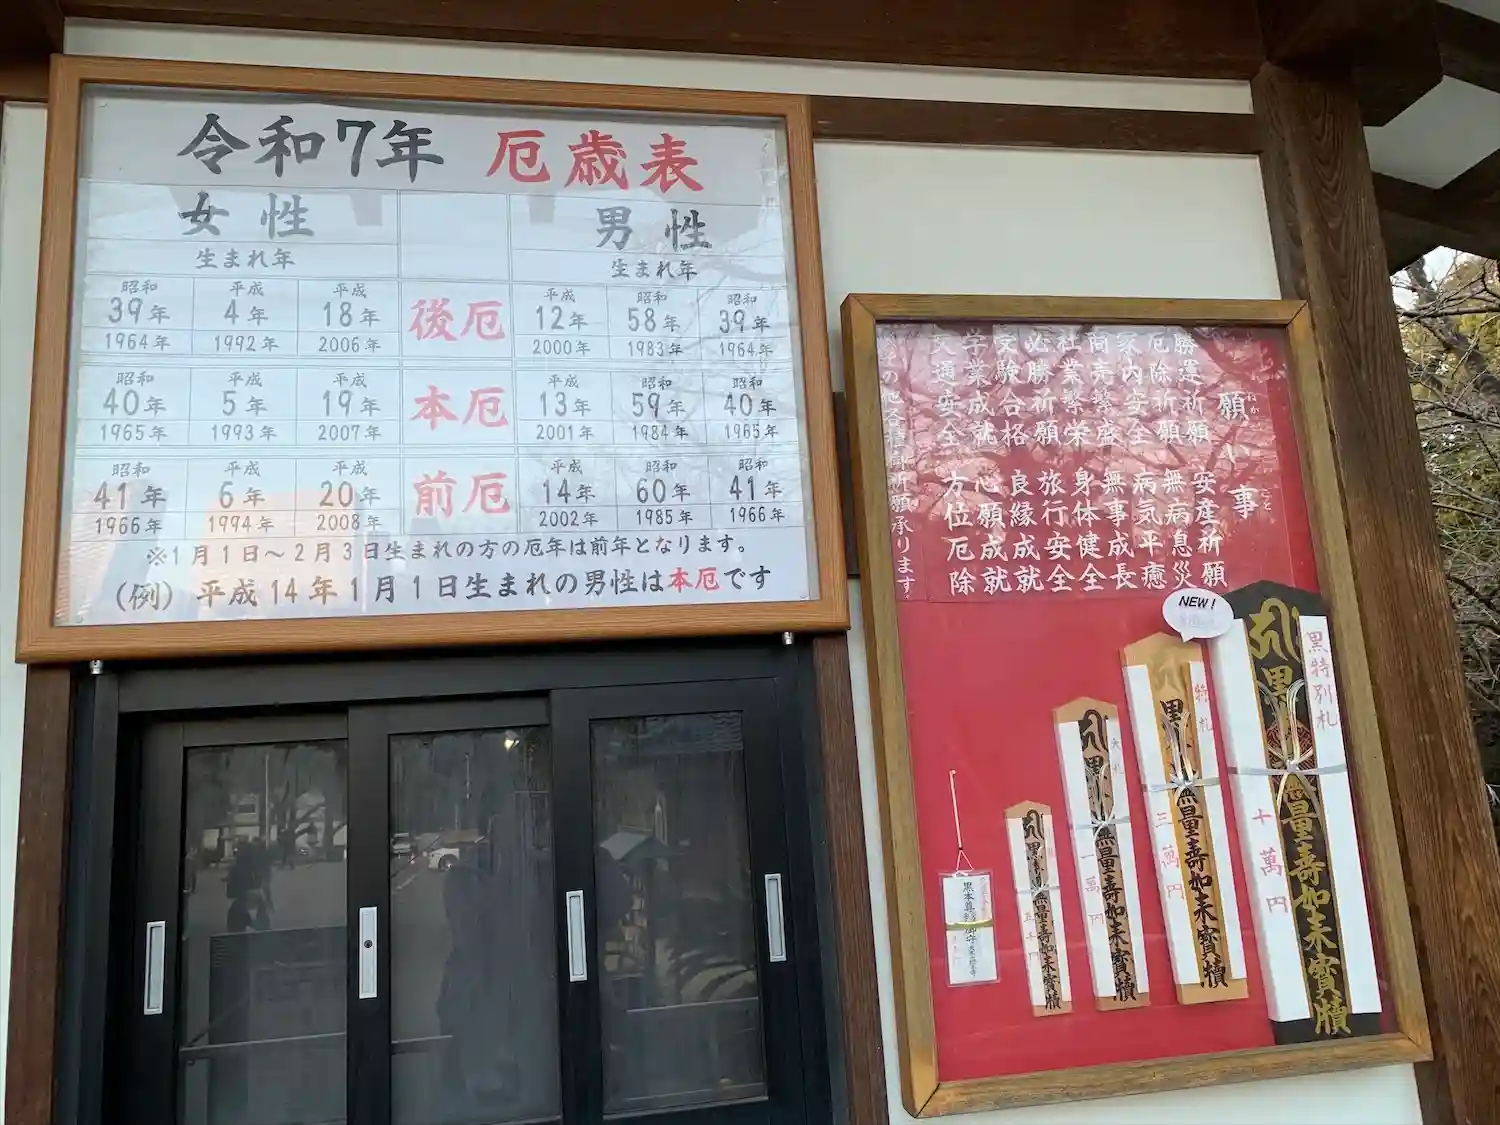 令和7年 厄歳表
女性
男性
生まれ年
生まれ年
昭和 平成 平成 平成 昭和 昭和
39年 4年 18年 後厄 12年 58年 39年
1964年 1992年 2006年 2000年 1983年 1964年
昭和 平成 平成 平成 昭和 昭和
40年 5年 19年 本厄 13年 59年 40年
1965年 1993年 2007年 2001年 1984年 1965年
昭和 平成 平成 平成 昭和 昭和
41年 6年 20年 前厄 14年 60年 41年
1966年 1994年 2008年 2002年 1985年 1966年
※1月1日～2月3日生まれの方の厄年は前年となります。
(例) 平成14年1月1日生まれの男性は本厄です
願い事
ねが ごと
勝運祈願 安産祈願
厄除祈願 無病息災
家内安全 病気平癒
商売繁盛 無事成長
社業繁栄 身体健全
必勝祈願 旅行安全
受験合格 良縁成就
学業成就 心願成就
交通安全 方位厄除
その他各種御祈願承ります。
NEW!
黒特別札
十萬円
無量壽如来寳牘
特札
三萬円
無量壽如来寳牘
大札
一萬円
無量壽如来寳牘
五千円
無量壽如来寳牘
黒本尊
御守